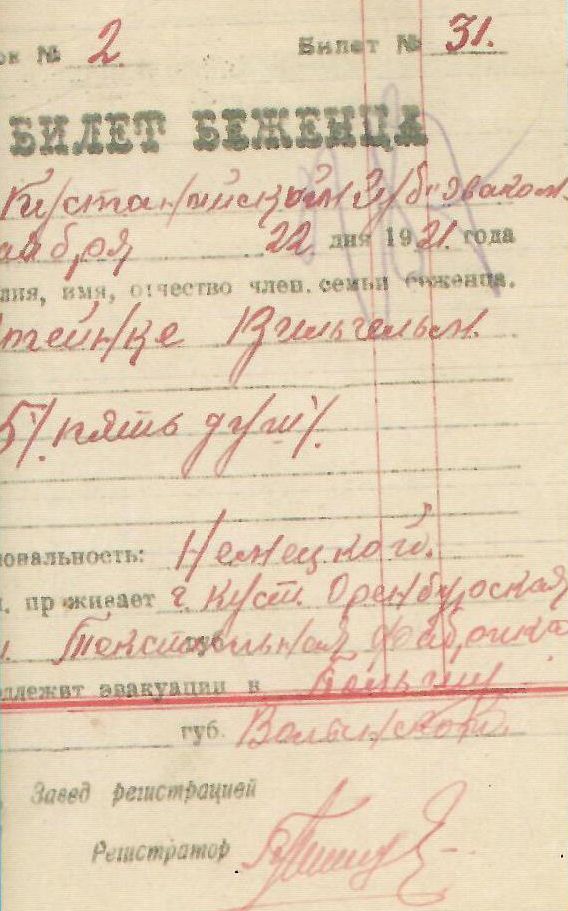 ок № 2 Билет № 31.
БИЛЕТ БЕЖЕНЦА
Кустанайской Губэваком.
22 дня 1921 года
лия, имя, отчество член. семьи беженца.
тейнке Вильгельм.
5/ пять душ/.
иональность: Немецкой.
проживает г. Куст. Оренбургская
Текстильная фабрика
одлежит эвакуации в Польшу
губ. Волынской.
Завед регистрацией
Регистратор